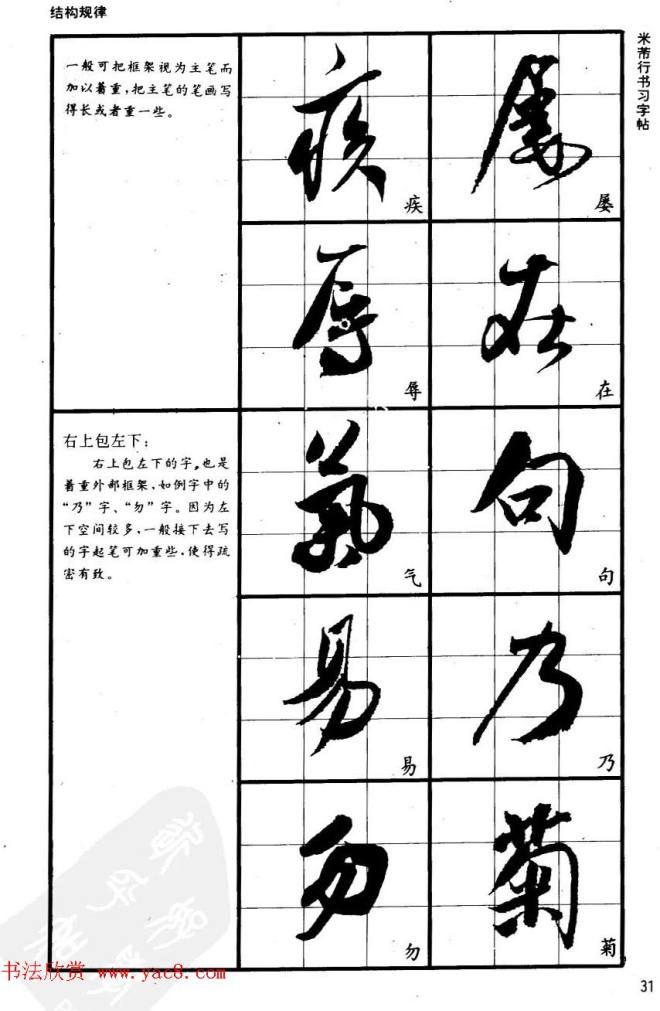 结构规律
米芾行书习字帖
一般可把框架视为主笔而
加以着重,把主笔的笔画写
得长或者重一些。
疾
屡
辱
在
右上包左下:
右上包左下的字,也是
着重外部框架,如例字中的
“乃”字、“勿”字。因为左
下空间较多,一般接下去写
的字起笔可加重些,使得疏
密有致。
氣
气
句
句
易
易
乃
乃
勿
勿
菊
菊
书法欣赏 www.yac8.com
31